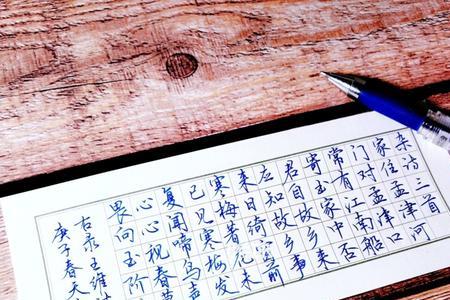 杂诗三首
家住孟津河
门对孟津口
常有江南船
寄书家中否
君自故乡来
应知故乡事
来日绮窗前
寒梅著花未
已见寒梅发
复闻啼鸟声
心心视春草
畏向玉阶
右录王维
庚子春天